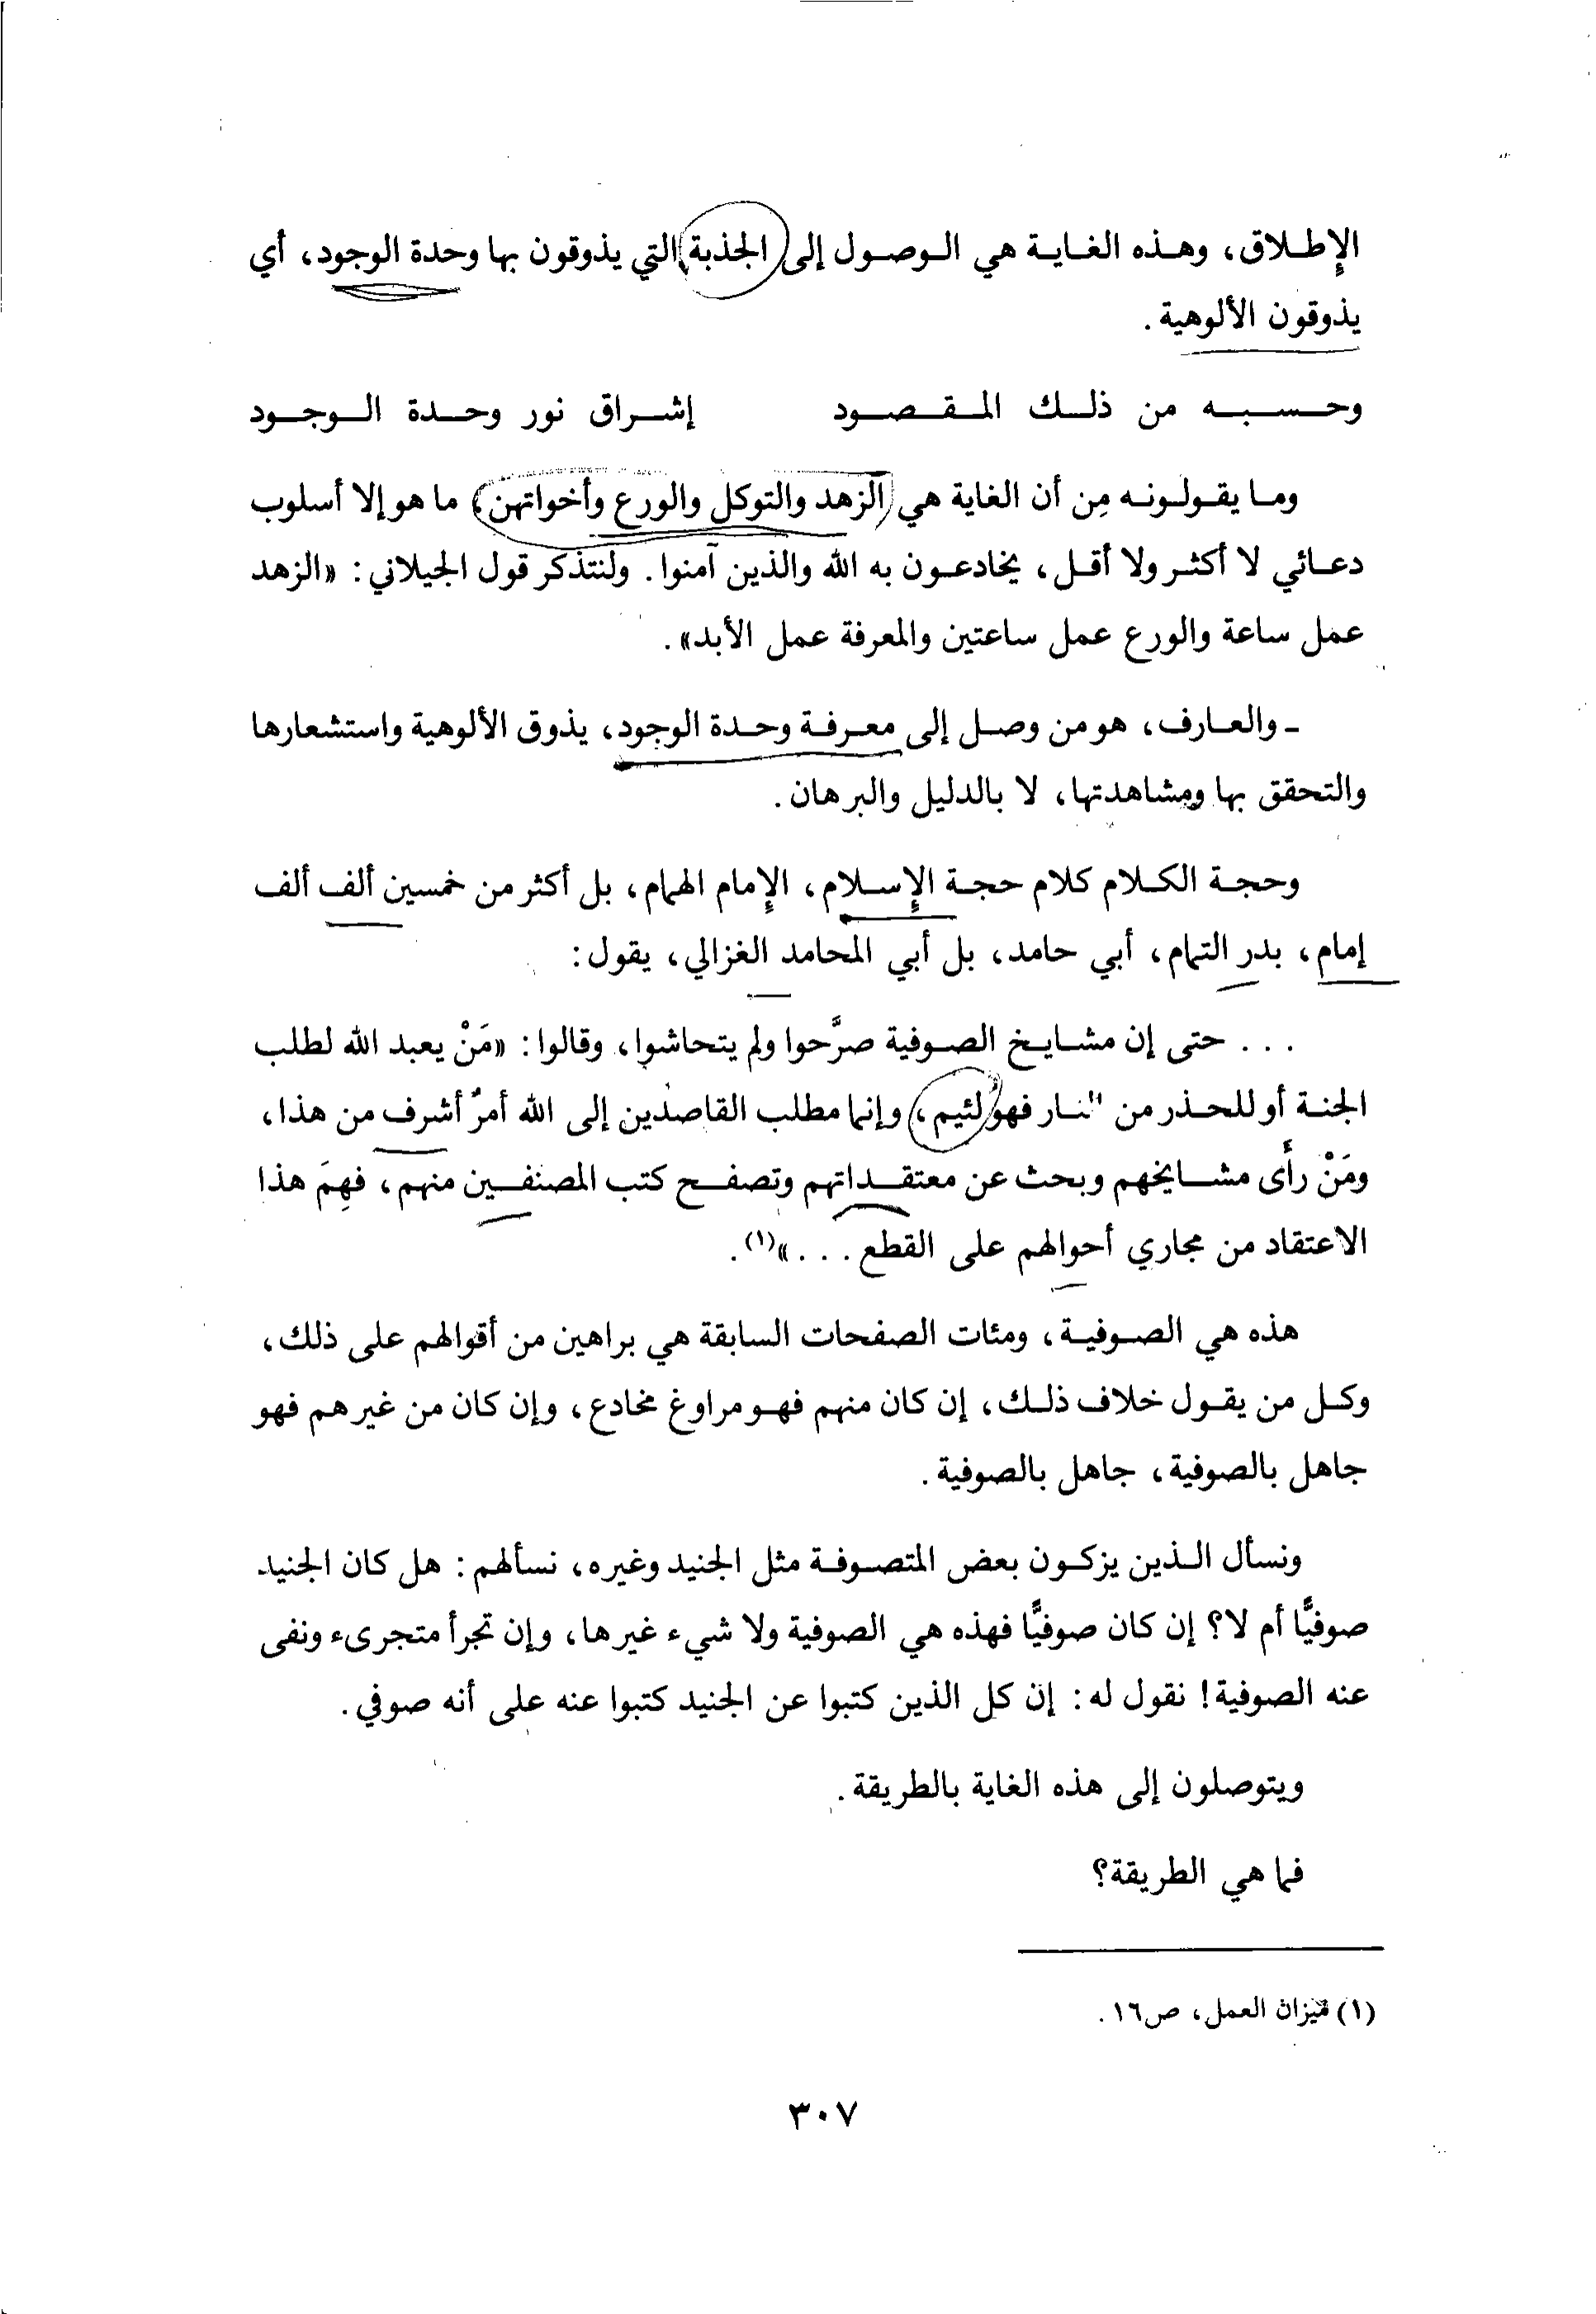 الإطلاق، وهذه الغاية هي الوصول إلى الجذبة التي يذوقون بها وحدة الوجود، أي
يذوقون الألوهية.
وحسبه من ذلك المقصود إشراق نور وحدة الوجود
وما يقولونه مِن أن الغاية هي الزهد والتوكل والورع وأخواتهن، ما هو إلا أسلوب
دعائي لا أكثر ولا أقل، يخادعون به الله والذين آمنوا. ولنتذكر قول الجيلاني: «الزهد
عمل ساعة والورع عمل ساعتين والمعرفة عمل الأبد».
ـ والعارف، هو من وصل إلى معرفة وحدة الوجود، يذوق الألوهية واستشعارها
والتحقق بها ومشاهدتها، لا بالدليل والبرهان.
وحجة الكلام كلام حجة الإسلام، الإمام الهمام، بل أكثر من خمسين ألف ألف
إمام، بدر التمام، أبي حامد، بل أبي المحامد الغزالي، يقول:
... حتى إن مشايخ الصوفية صرَّحوا ولم يتحاشوا، وقالوا: «مَنْ يعبد الله لطلب
الجنة أو للحذر من النار فهو لئيم، وإنما مطلب القاصدين إلى الله أمرٌ أشرف من هذا،
ومَنْ رأى مشايخهم وبحث عن معتقداتهم وتصفح كتب المصنفين منهم، فهِمَ هذا
الاعتقاد من مجاري أحوالهم على القطع...»(١).
هذه هي الصوفية، ومئات الصفحات السابقة هي براهين من أقوالهم على ذلك،
وكل من يقول خلاف ذلك، إن كان منهم فهو مراوغ مخادع، وإن كان من غيرهم فهو
جاهل بالصوفية، جاهل بالصوفية.
ونسأل الذين يزكون بعض المتصوفة مثل الجنيد وغيره، نسألهم: هل كان الجنيد
صوفيًّا أم لا؟ إن كان صوفيًّا فهذه هي الصوفية ولا شيء غيرها، وإن تجرأ متجرىء ونفى
عنه الصوفية! نقول له: إن كل الذين كتبوا عن الجنيد كتبوا عنه على أنه صوفي.
ويتوصلون إلى هذه الغاية بالطريقة.
فما هي الطريقة؟
(١) ميزان العمل، ص١٦.
٣٠٧